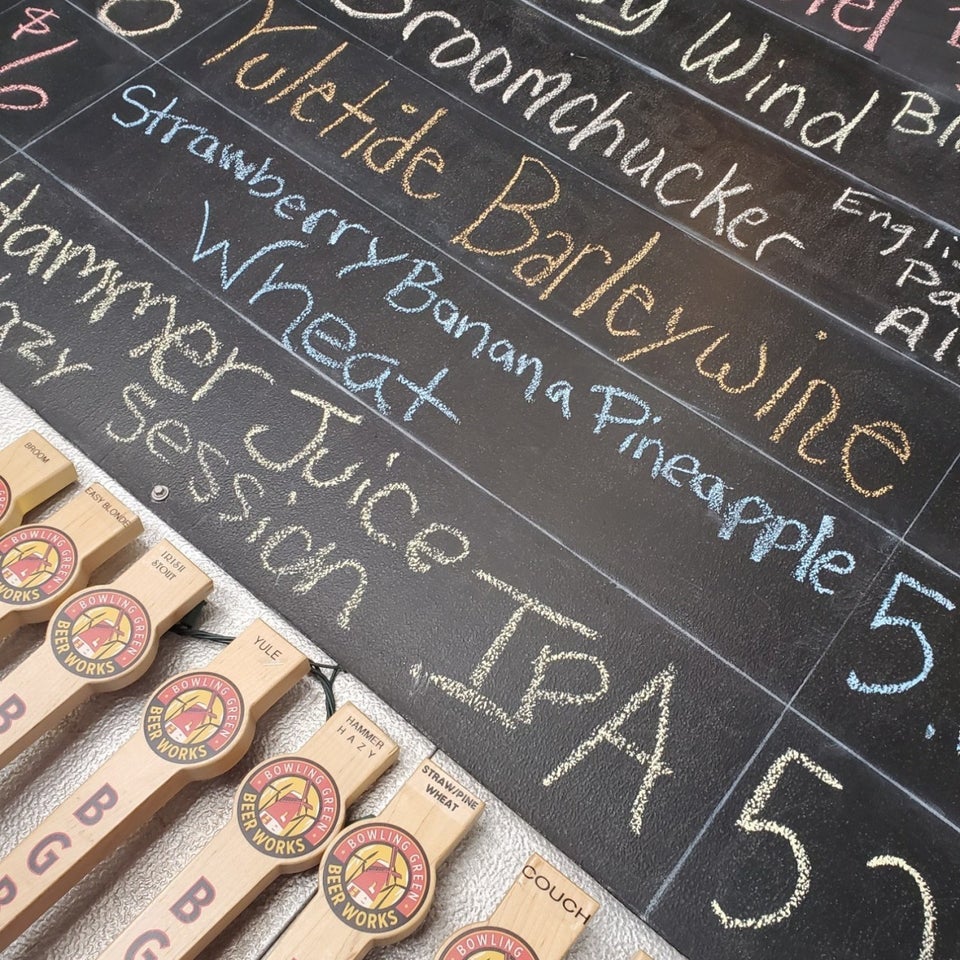 $
Wind
Broomchucker
English
Yuletide Barleywine
Strawberry Banana Pineapple 5.
Wheat
Hammer Juice IPA 5
Session
BROOM
EASY BLONDE
IRISH
STOUT
YULE
HAMMER
HAZY
STRAW/PINE
WHEAT
COUCH
BOWLING GREEN
BEER WORKS
BOWLING GREEN
BEER WORKS
BOWLING GREEN
BEER WORKS
BOWLING GREEN
BEER WORKS
BOWLING GREEN
BEER WORKS
BOWLING
B
BGB
BG